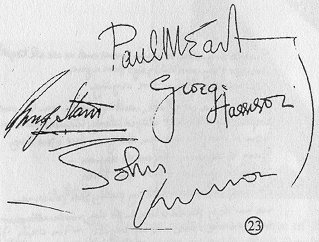 Paul McCart
George
Harrison
Ringo Starr
John
Lennon
23